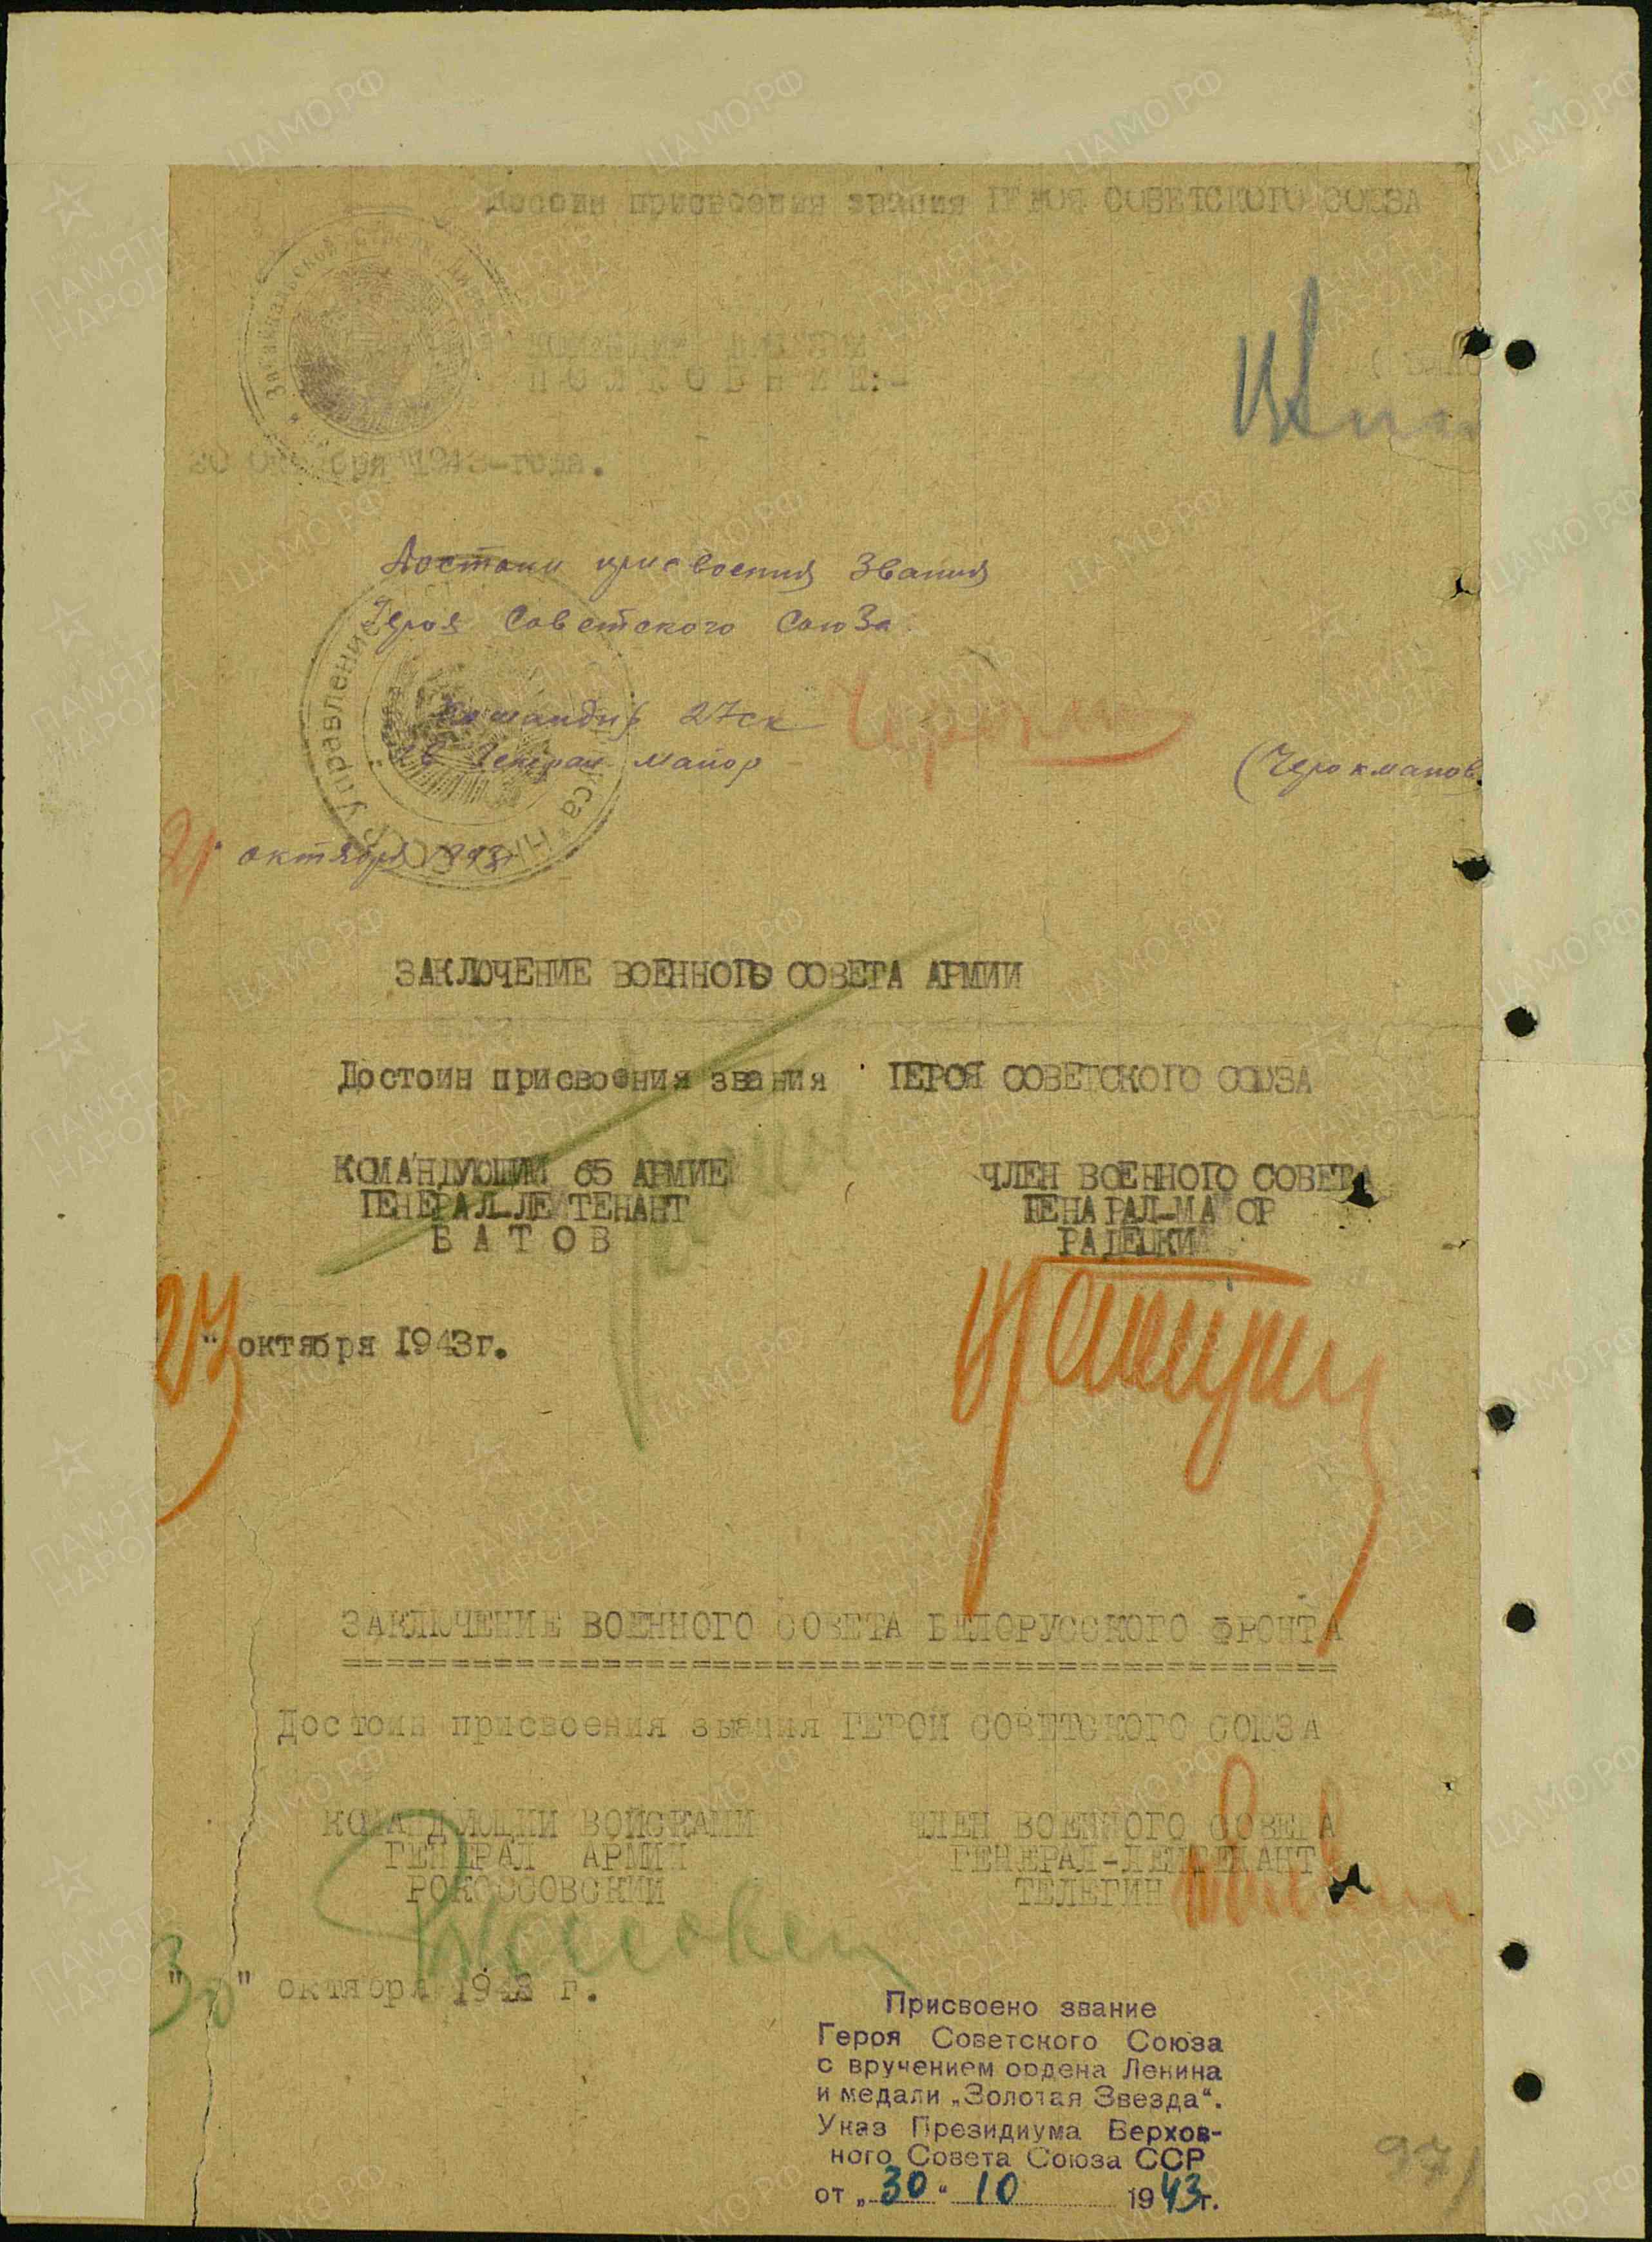 Достоин присвоения звания ГЕРОЯ СОВЕТСКОГО СОЮЗА
П О Л К О В Н И К :-
20 октября 1943-года.
Достоин присвоения Звания
Героя Советского Союза.
Командир 27 ск
Генерал майор
(Черокманов
21" октября 1943г
ЗАКЛЮЧЕНИЕ ВОЕННОГО СОВЕТА АРМИИ
Достоин присвоения звания ГЕРОЯ СОВЕТСКОГО СОЮЗА
КОМАНДУЮЩИЙ 65 АРМИЕЙ
ГЕНЕРАЛ-ЛЕЙТЕНАНТ
Б А Т О В
ЧЛЕН ВОЕННОГО СОВЕТА
ГЕНАРАЛ-МАЙОР
РАДЕЦКИЙ
" октября 1943г.
ЗАКЛЮЧЕНИЕ ВОЕННОГО СОВЕТА БЕЛОРУССКОГО ФРОНТА
Достоин присвоения звания ГЕРОЙ СОВЕТСКОГО СОЮЗА
КОМАНДУЮЩИЙ ВОЙСКАМИ
ГЕНЕРАЛ АРМИИ
РОКОССОВСКИЙ
ЧЛЕН ВОЕННОГО СОВЕТА
ГЕНЕРАЛ-ЛЕЙТЕНАНТ
ТЕЛЕГИН
"30" октября 1943 г.
Присвоено звание
Героя Советского Союза
с вручением ордена Ленина
и медали „Золотая Звезда“.
Указ Президиума Верхов-
ного Совета Союза ССР
от „30“ 10 1943г.